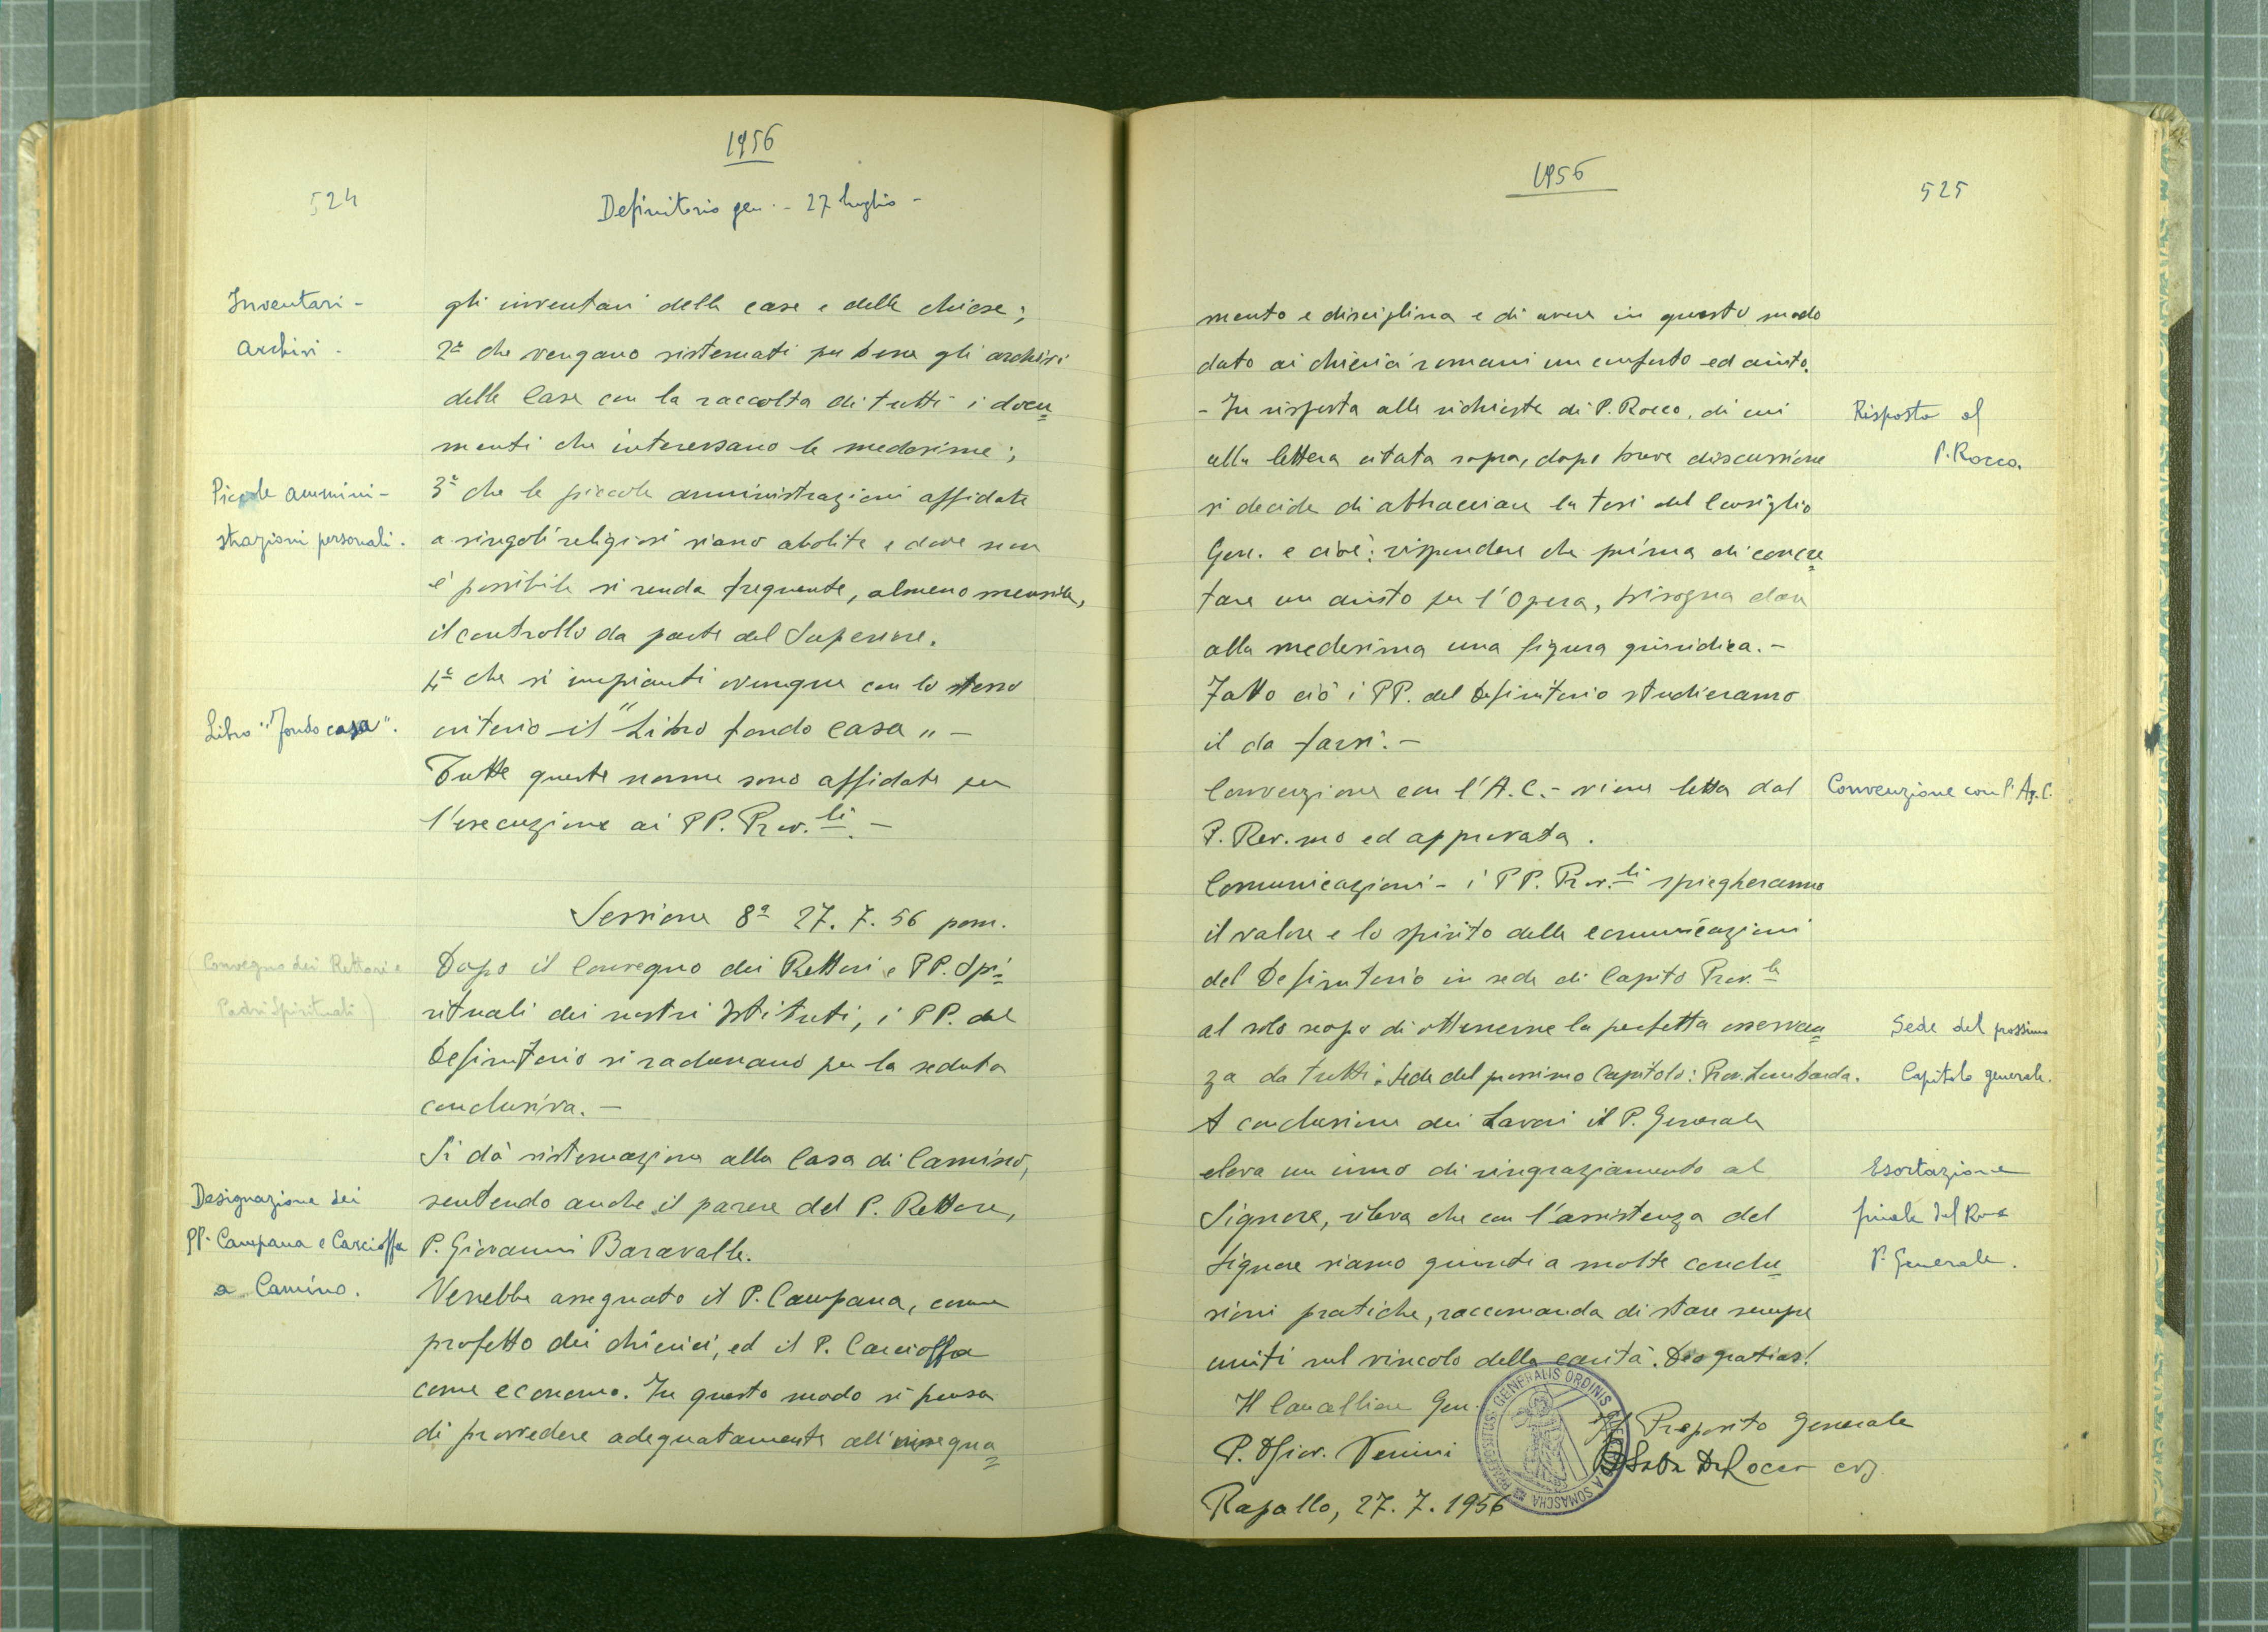 1956
524
Definitorio gen. - 27 luglio -
Inventari -
Archivi -
gli inventari delle case e delle chiese;
2º che vengano sistemati per bene gli archivi
delle Case con la raccolta di tutti i docu=
menti che interessano le medesime;
Piccole ammini-
strazioni personali.
3º che le piccole amministrazioni affidate
a singoli religiosi siano abolite e dove non
è possibile si renda frequente, almeno mensile,
il controllo da parte del Superiore.
4º che si impianti ovunque con lo stesso
Libro "fondo casa".
criterio il "Libro fondo casa" -
Tutte queste norme sono affidate per
l'esecuzione ai PP. Prov.li. -
Sessione 8ª 27. 7. 56 pom.
(Convegno dei Rettori e
Padri Spirituali)
Dopo il Convegno dei Rettori e PP. Spi=
rituali dei nostri Istituti, i PP. del
Definitorio si radunano per la seduta
conclusiva. -
Si dà sistemazione alla Casa di Camino,
sentendo anche il parere del P. Rettore,
Designazione dei
PP. Campana e Carcioffa
a Camino.
P. Giovanni Baravalle.
Verrebbe assegnato il P. Campana, come
prefetto dei chierici, ed il P. Carcioffa
come economo. In questo modo si pensa
di provvedere adeguatamente all'insegna=
1956
525
mento e disciplina e di avere in questo modo
dato ai chierici romani un conforto ed aiuto.
- In risposta alle richieste di P. Rocco, di cui
alla lettera citata sopra, dopo breve discussione
Risposta al
P. Rocco.
si decide di abbracciare la tesi del Consiglio
Gen. e cioè: rispondere che prima di concre=
tare un aiuto per l'Opera, bisogna dare
alla medesima una figura giuridica. -
Fatto ciò i PP. del Definitorio studieranno
il da farsi. -
Convenzione con l'A.C. - viene letta dal
Convenzione con l'Az. C.
P. Rev.mo ed approvata.
Comunicazioni - i PP. Prov.li spiegheranno
il valore e lo spirito delle comunicazioni
del Definitorio in sede di Capito Prov.le
al solo scopo di ottenerne la perfetta osservan=
za da tutti. Sede del prossimo Capitolo: Prov. Lombarda.
Sede del prossimo
Capitolo generale.
A conclusione dei Lavori il P. Generale
eleva un inno di ringraziamento al
Signore, rileva che con l'assistenza del
Signore siamo giunti a molte conclu=
sioni pratiche, raccomanda di stare sempre
uniti nel vincolo della carità. Deo gratias!
Esortazione
finale del Rmo
P. Generale.
Il Cancelliere Gen.
P. Giov. Venini
Il Preposito Generale
P. Saba De Rocco crs.
PRAEPOSITUS GENERALIS ORDINIS A SOMASCHA
Rapallo, 27. 7. 1956